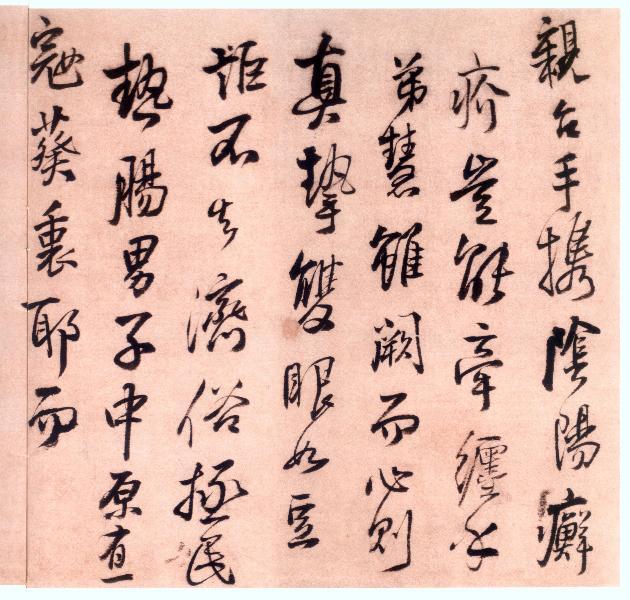 親台手携陰陽癬
疥豈能牽纏乎
弟慧雖闕而心則
真摯雙眼如豆
詎不濟俗拯民
熱腸男子中原有一
寇葵裏耶而